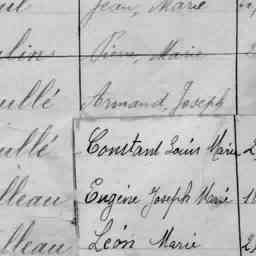 Jean, Marie
Marie
ullé Armand, Joseph
ullé Constant Louis Marie 2
lleau Eugène Joseph Marie 1
lleau Léon Marie 2